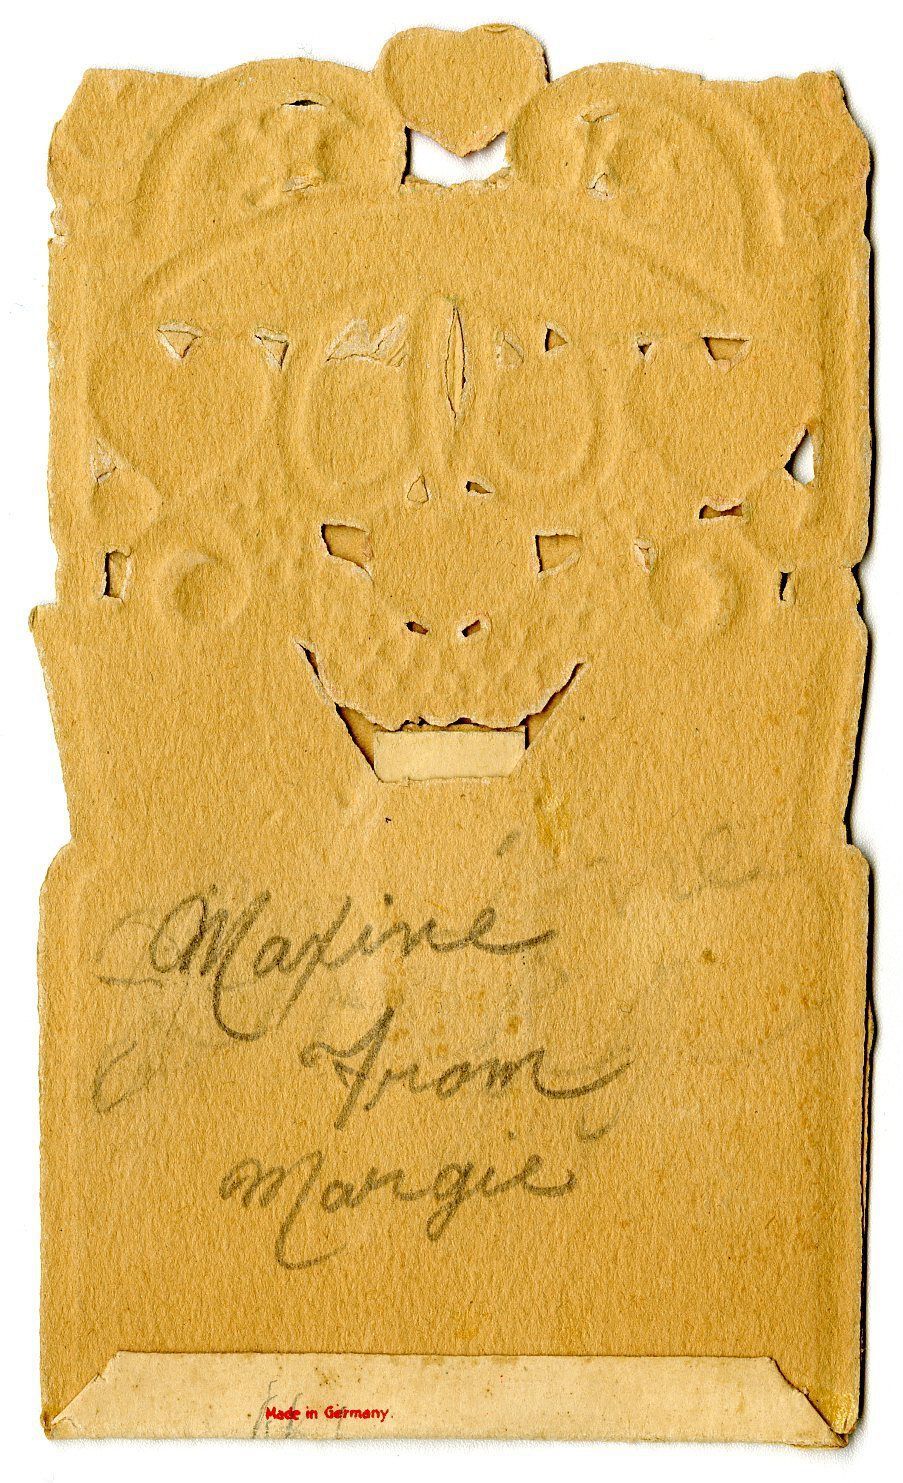 Maxine
From
Margie
Made in Germany.